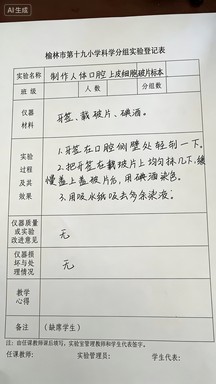 AI生成
榆林市第十九小学科学分组实验登记表
实验名称 制作人体口腔上皮细胞玻片标本
班级 人数 分组数
仪器材料 牙签、载玻片、碘酒。
实验过程及其效果
1.牙签在口腔侧壁处轻刮一下。
2.把牙签在载玻片上均匀抹几下,缓
慢盖上盖玻片后,用碘酒染色。
3.用吸水纸吸去多余染液。
仪器质量或实验改进意见 无
仪器损坏与处理情况 无
教学心得
备注 (缺席学生)
注:由任课教师课后填写,实验室管理教师和学生代表签字。
任课教师: 实验管理员: 学生代表: